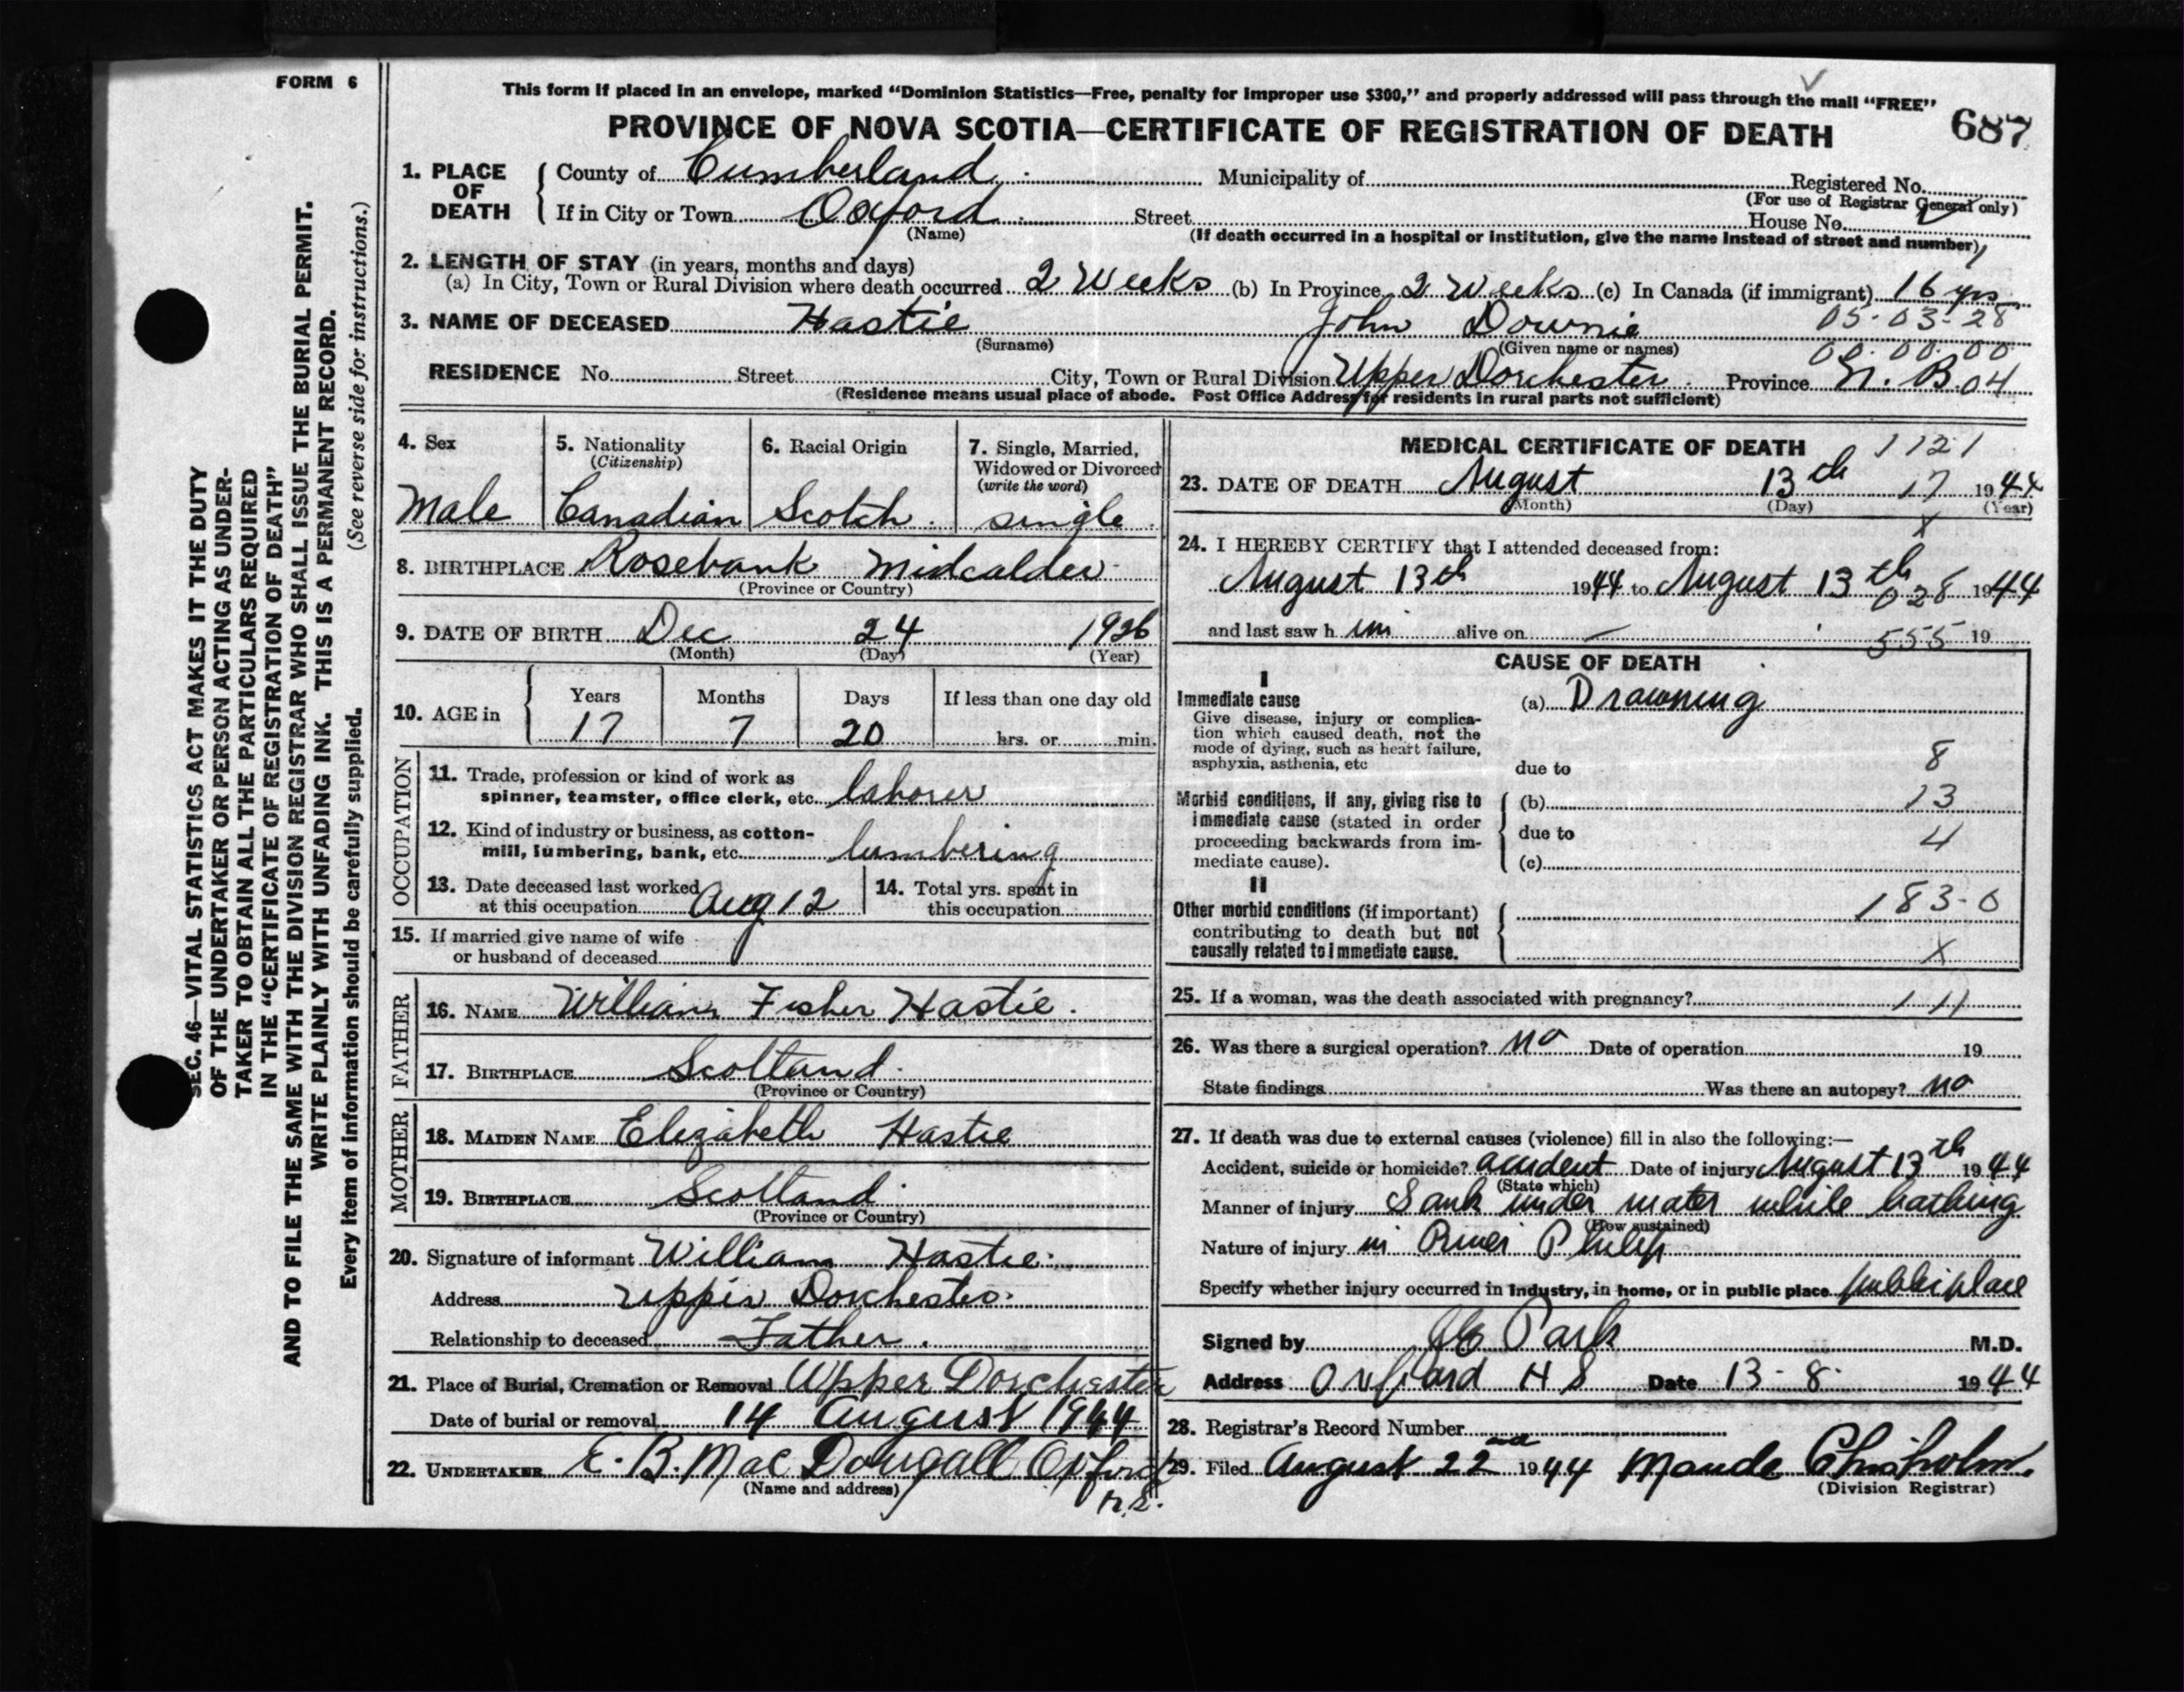 FORM 6
This form if placed in an envelope, marked "Dominion Statistics—Free, penalty for improper use $300," and properly addressed will pass through the mail "FREE"
687
PROVINCE OF NOVA SCOTIA—CERTIFICATE OF REGISTRATION OF DEATH
1. PLACE OF DEATH
County of Cumberland Municipality of Registered No.
(For use of Registrar General only)
If in City or Town Oxford Street House No.
(Name) (If death occurred in a hospital or institution, give the name instead of street and number)
2. LENGTH OF STAY (in years, months and days)
(a) In City, Town or Rural Division where death occurred 2 Weeks (b) In Province 2 Weeks (c) In Canada (if immigrant) 16 yrs
3. NAME OF DECEASED Hastie John Downie 05-03-28
(Surname) (Given name or names) 00-00-00
RESIDENCE No. Street City, Town or Rural Division Upper Dorchester Province N.B. 04
(Residence means usual place of abode. Post Office Address for residents in rural parts not sufficient)
4. Sex
Male
5. Nationality
(Citizenship)
Canadian
6. Racial Origin
Scotch
7. Single, Married,
Widowed or Divorced
(write the word)
single
8. BIRTHPLACE Rosebank Midcalder
(Province or Country)
9. DATE OF BIRTH Dec 24 1926
(Month) (Day) (Year)
10. AGE in
Years Months Days If less than one day old
17 7 20 hrs. or min.
OCCUPATION
11. Trade, profession or kind of work as
spinner, teamster, office clerk, etc. laborer
12. Kind of industry or business, as cotton-
mill, lumbering, bank, etc. lumbering
13. Date deceased last worked
at this occupation Aug 12
14. Total yrs. spent in
this occupation
15. If married give name of wife
or husband of deceased
FATHER
16. NAME William Fisher Hastie
17. BIRTHPLACE Scotland
(Province or Country)
MOTHER
18. MAIDEN NAME Elizabeth Hastie
19. BIRTHPLACE Scotland
(Province or Country)
20. Signature of informant William Hastie
Address Upper Dorchester
Relationship to deceased Father
21. Place of Burial, Cremation or Removal Upper Dorchester
Date of burial or removal 14 August 1944
22. UNDERTAKER E. B. MacDougall Oxford
(Name and address) N.S.
MEDICAL CERTIFICATE OF DEATH 1121
23. DATE OF DEATH August 13th 17 1944
(Month) (Day) (Year)
X
24. I HEREBY CERTIFY that I attended deceased from:
August 13th 1944 to August 13th 1944
028
and last saw h im alive on — 19
555
CAUSE OF DEATH
I
Immediate cause
Give disease, injury or complica-
tion which caused death, not the
mode of dying, such as heart failure,
asphyxia, asthenia, etc
(a) Drowning
due to 8
Morbid conditions, if any, giving rise to
immediate cause (stated in order
proceeding backwards from im-
mediate cause).
(b) 13
due to 4
(c)
II
Other morbid conditions (if important)
contributing to death but not
causally related to immediate cause.
183-0
X
25. If a woman, was the death associated with pregnancy? 111
26. Was there a surgical operation? no Date of operation 19
State findings Was there an autopsy? no
27. If death was due to external causes (violence) fill in also the following:—
Accident, suicide or homicide? accident Date of injury August 13th 1944
(State which)
Manner of injury Sank under water while bathing
(How sustained)
Nature of injury in River Philip
Specify whether injury occurred in industry, in home, or in public place public place
Signed by Park M.D.
Address Oxford N S Date 13-8- 1944
28. Registrar's Record Number
29. Filed August 22nd 1944 Maude Chisholm.
(Division Registrar)
SEC. 46—VITAL STATISTICS ACT MAKES IT THE DUTY
OF THE UNDERTAKER OR PERSON ACTING AS UNDER-
TAKER TO OBTAIN ALL THE PARTICULARS REQUIRED
IN THE "CERTIFICATE OF REGISTRATION OF DEATH"
AND TO FILE THE SAME WITH THE DIVISION REGISTRAR WHO SHALL ISSUE THE BURIAL PERMIT.
WRITE PLAINLY WITH UNFADING INK. THIS IS A PERMANENT RECORD.
Every item of information should be carefully supplied. (See reverse side for instructions.)